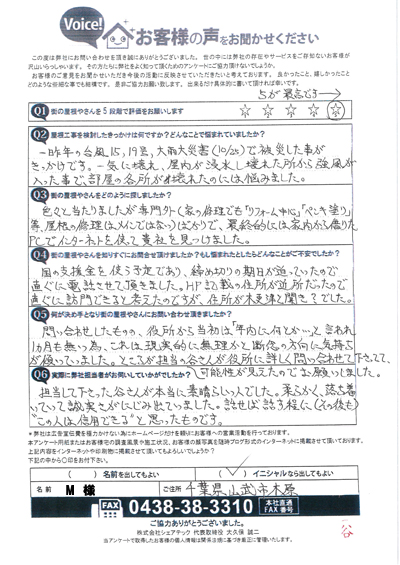 Voice!
お客様の声をお聞かせください
この度は弊社にお問い合わせを頂き誠にありがとうございました。世の中には弊社の存在やサービスをご存知ないお客様が
沢山いらっしゃいます。その方たちに弊社をよく知って頂くためのアンケートにご協力頂けないでしょうか。
お客様のご意見をお聞かせいただき今後の活動に反映させていただきたいと考えております。良かったこと、嬉しかったこと
どのような些細な事でも結構です。是非ご協力お願い致します。出来るだけ具体的に書いて頂ければ幸いです。
5が最高です→
Q1 街の屋根やさんを5段階で評価をお願いします
☆ ☆ ☆ ☆ ☆
Q2 屋根工事を検討したきっかけは何ですか?どんなことで悩まれていましたか?
一昨年の台風15,19号、大雨大災害(10/25)で被災した事が
きっかけです。一気に壊れ、屋内が浸水し壊れた所から強風が
入った事で、部屋の各所が壊れたのには悩みました。
Q3 街の屋根やさんをどのように探しましたか?
色々と当たりましたが専門外(家の修理でも「リフォーム中心」「ペンキ塗り」
等、屋根の修理はメインではない)ばかりで、最終的には家内から借りた
PCでインターネットを使って貴社を見つけました。
Q4 街の屋根やさんを知りすぐにお問合せ頂けましたか?もし悩まれたとしたらどんなことが不安でしたか?
国の支援金を使う予定であり、締め切りの期日が迫っていたので
直ぐに電話させて頂きました。HP記載の住所が近所だったので
直ぐに訪問できると考えたのですが、住所が木更津と聞き?でした。
Q5 何が決め手となり街の屋根やさんにお問い合わせ頂きましたか?
問い合わせしたものの、役所から当初は「年内に何とか…」と言われ
1カ月も無い為、これは現実的に無理かと断念の方向に気持ち
が傾いていました。ところが担当の谷さんが役所に詳しく問い合わせて下さって、
可能性が見えたのでお願いしました。
Q6 実際に弊社担当者がお伺いしていかがでしたか?
担当して下さった谷さんが本当に素晴らしい人でした。柔らかく、落ち着
いていて誠実さがにじみ出ていました。話せば話す程に(その後も)
“この人は信用できる”と思ったものです。
＊弊社は広告宣伝費を極力かけない為にホームページだけを頼りにお客様への営業活動を行っております。
本アンケート用紙またはお客様宅の調査風景や施工状況、お客様の顔写真を随時ブログ形式のインターネットに掲載させて頂いております。
上記内容をインターネットや印刷物に掲載させて頂いてもよろしいでしょうか?
下記の中から○印をお付け下さい。
( ) 名前を出してもよい ( ✓ ) イニシャルなら出してもよい
名前 M 様 ご住所 千葉県山武市木原
FAX 0438-38-3310 本社直通 FAX番号
ご協力ありがとうございました。
株式会社シェアテック 代表取締役 大久保 誠二
当アンケートで取得したお客様の個人情報は関係法規に基づき厳正に管理いたします。
谷